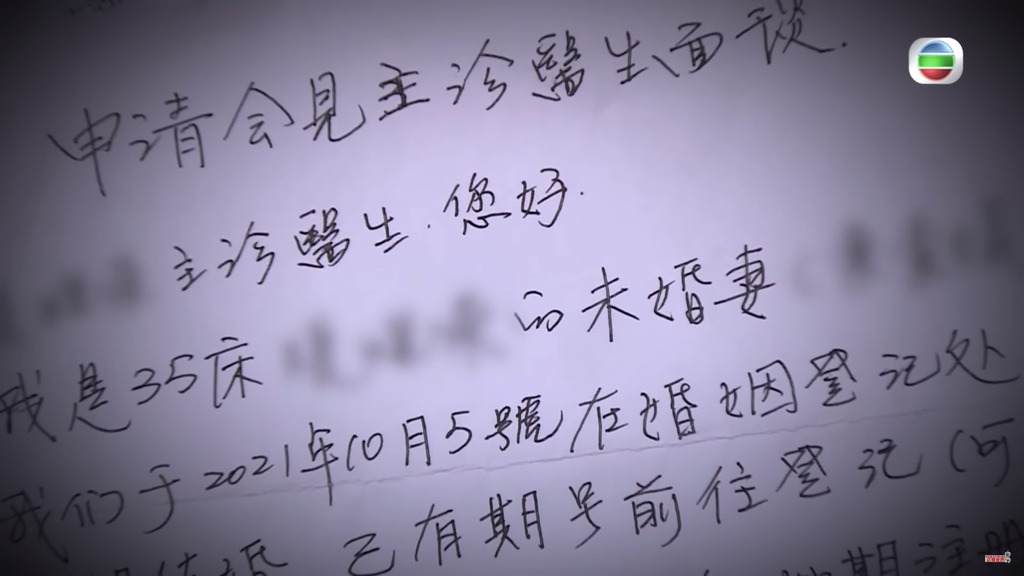 申请会見主诊醫生面谈.
主诊醫生.您好.
我是35床
的未婚妻
我们于2021年10月5號在婚姻登记处
结婚 已有期号前往登记(可
期注明